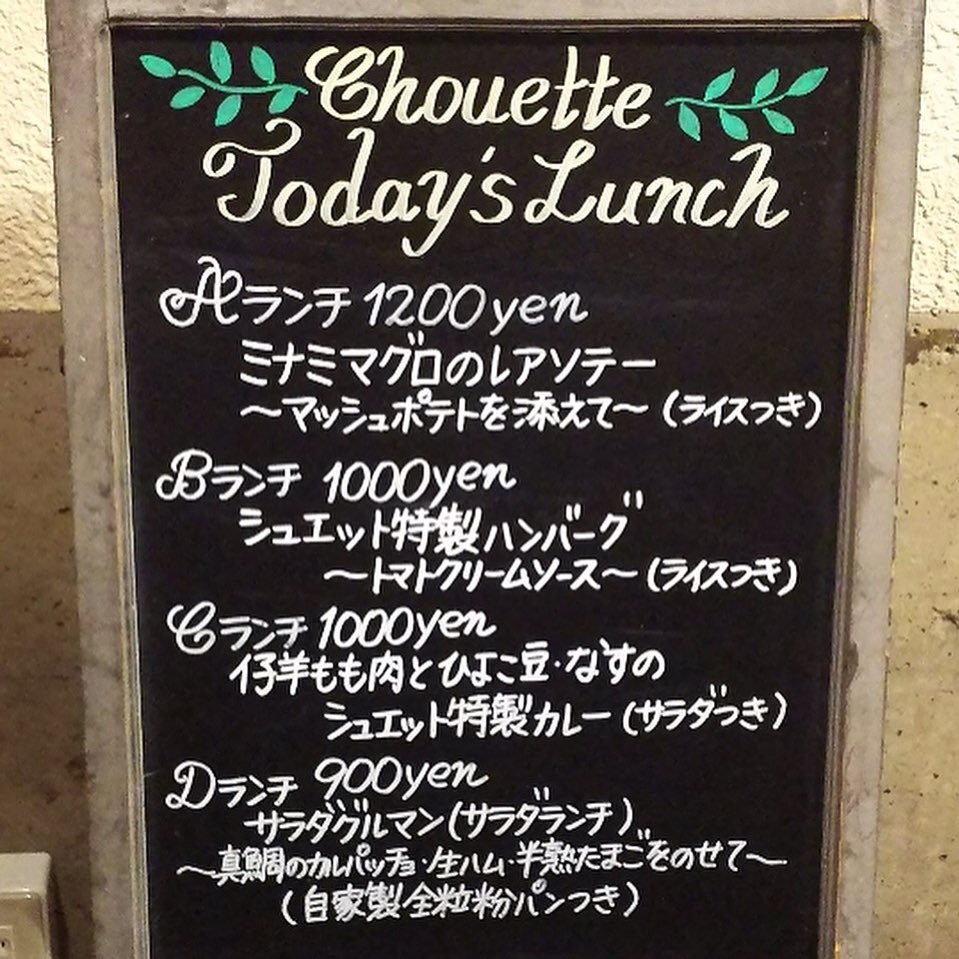 Chouette
Today's Lunch
Aランチ 1200yen
ミナミマグロのレアソテー
～マッシュポテトを添えて～(ライスつき)
Bランチ 1000yen
シュエット特製ハンバーグ
～トマトクリームソース～(ライスつき)
Cランチ 1000yen
仔羊もも肉とひよこ豆・なすの
シュエット特製カレー(サラダつき)
Dランチ 900yen
サラダグルマン(サラダランチ)
～真鯛のカルパッチョ・生ハム・半熟たまごをのせて～
(自家製全粒粉パンつき)